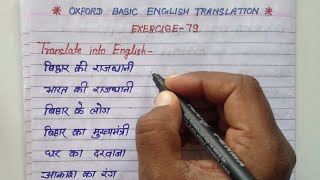 * OXFORD BASIC ENGLISH TRANSLATION *
EXERCISE-79
Translate into English-
बिहार की राजधानी
भारत की राजधानी
बिहार के लोग
बिहार का मुख्यमंत्री
घर का दरवाजा
आकाश का रंग